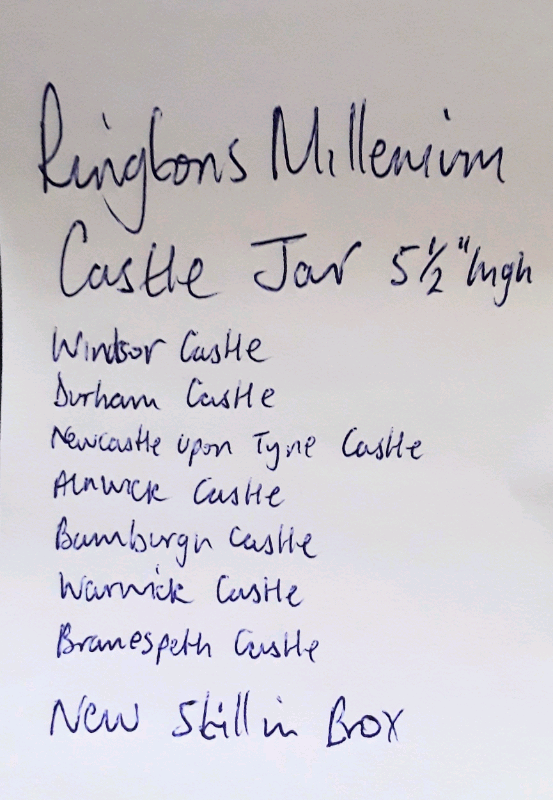 Ringtons Millenium
Castle Jar 5½" high
Windsor Castle
Durham Castle
Newcastle upon Tyne Castle
Alnwick Castle
Bamburgh Castle
Warwick Castle
Branespeth Castle
New Still in Box